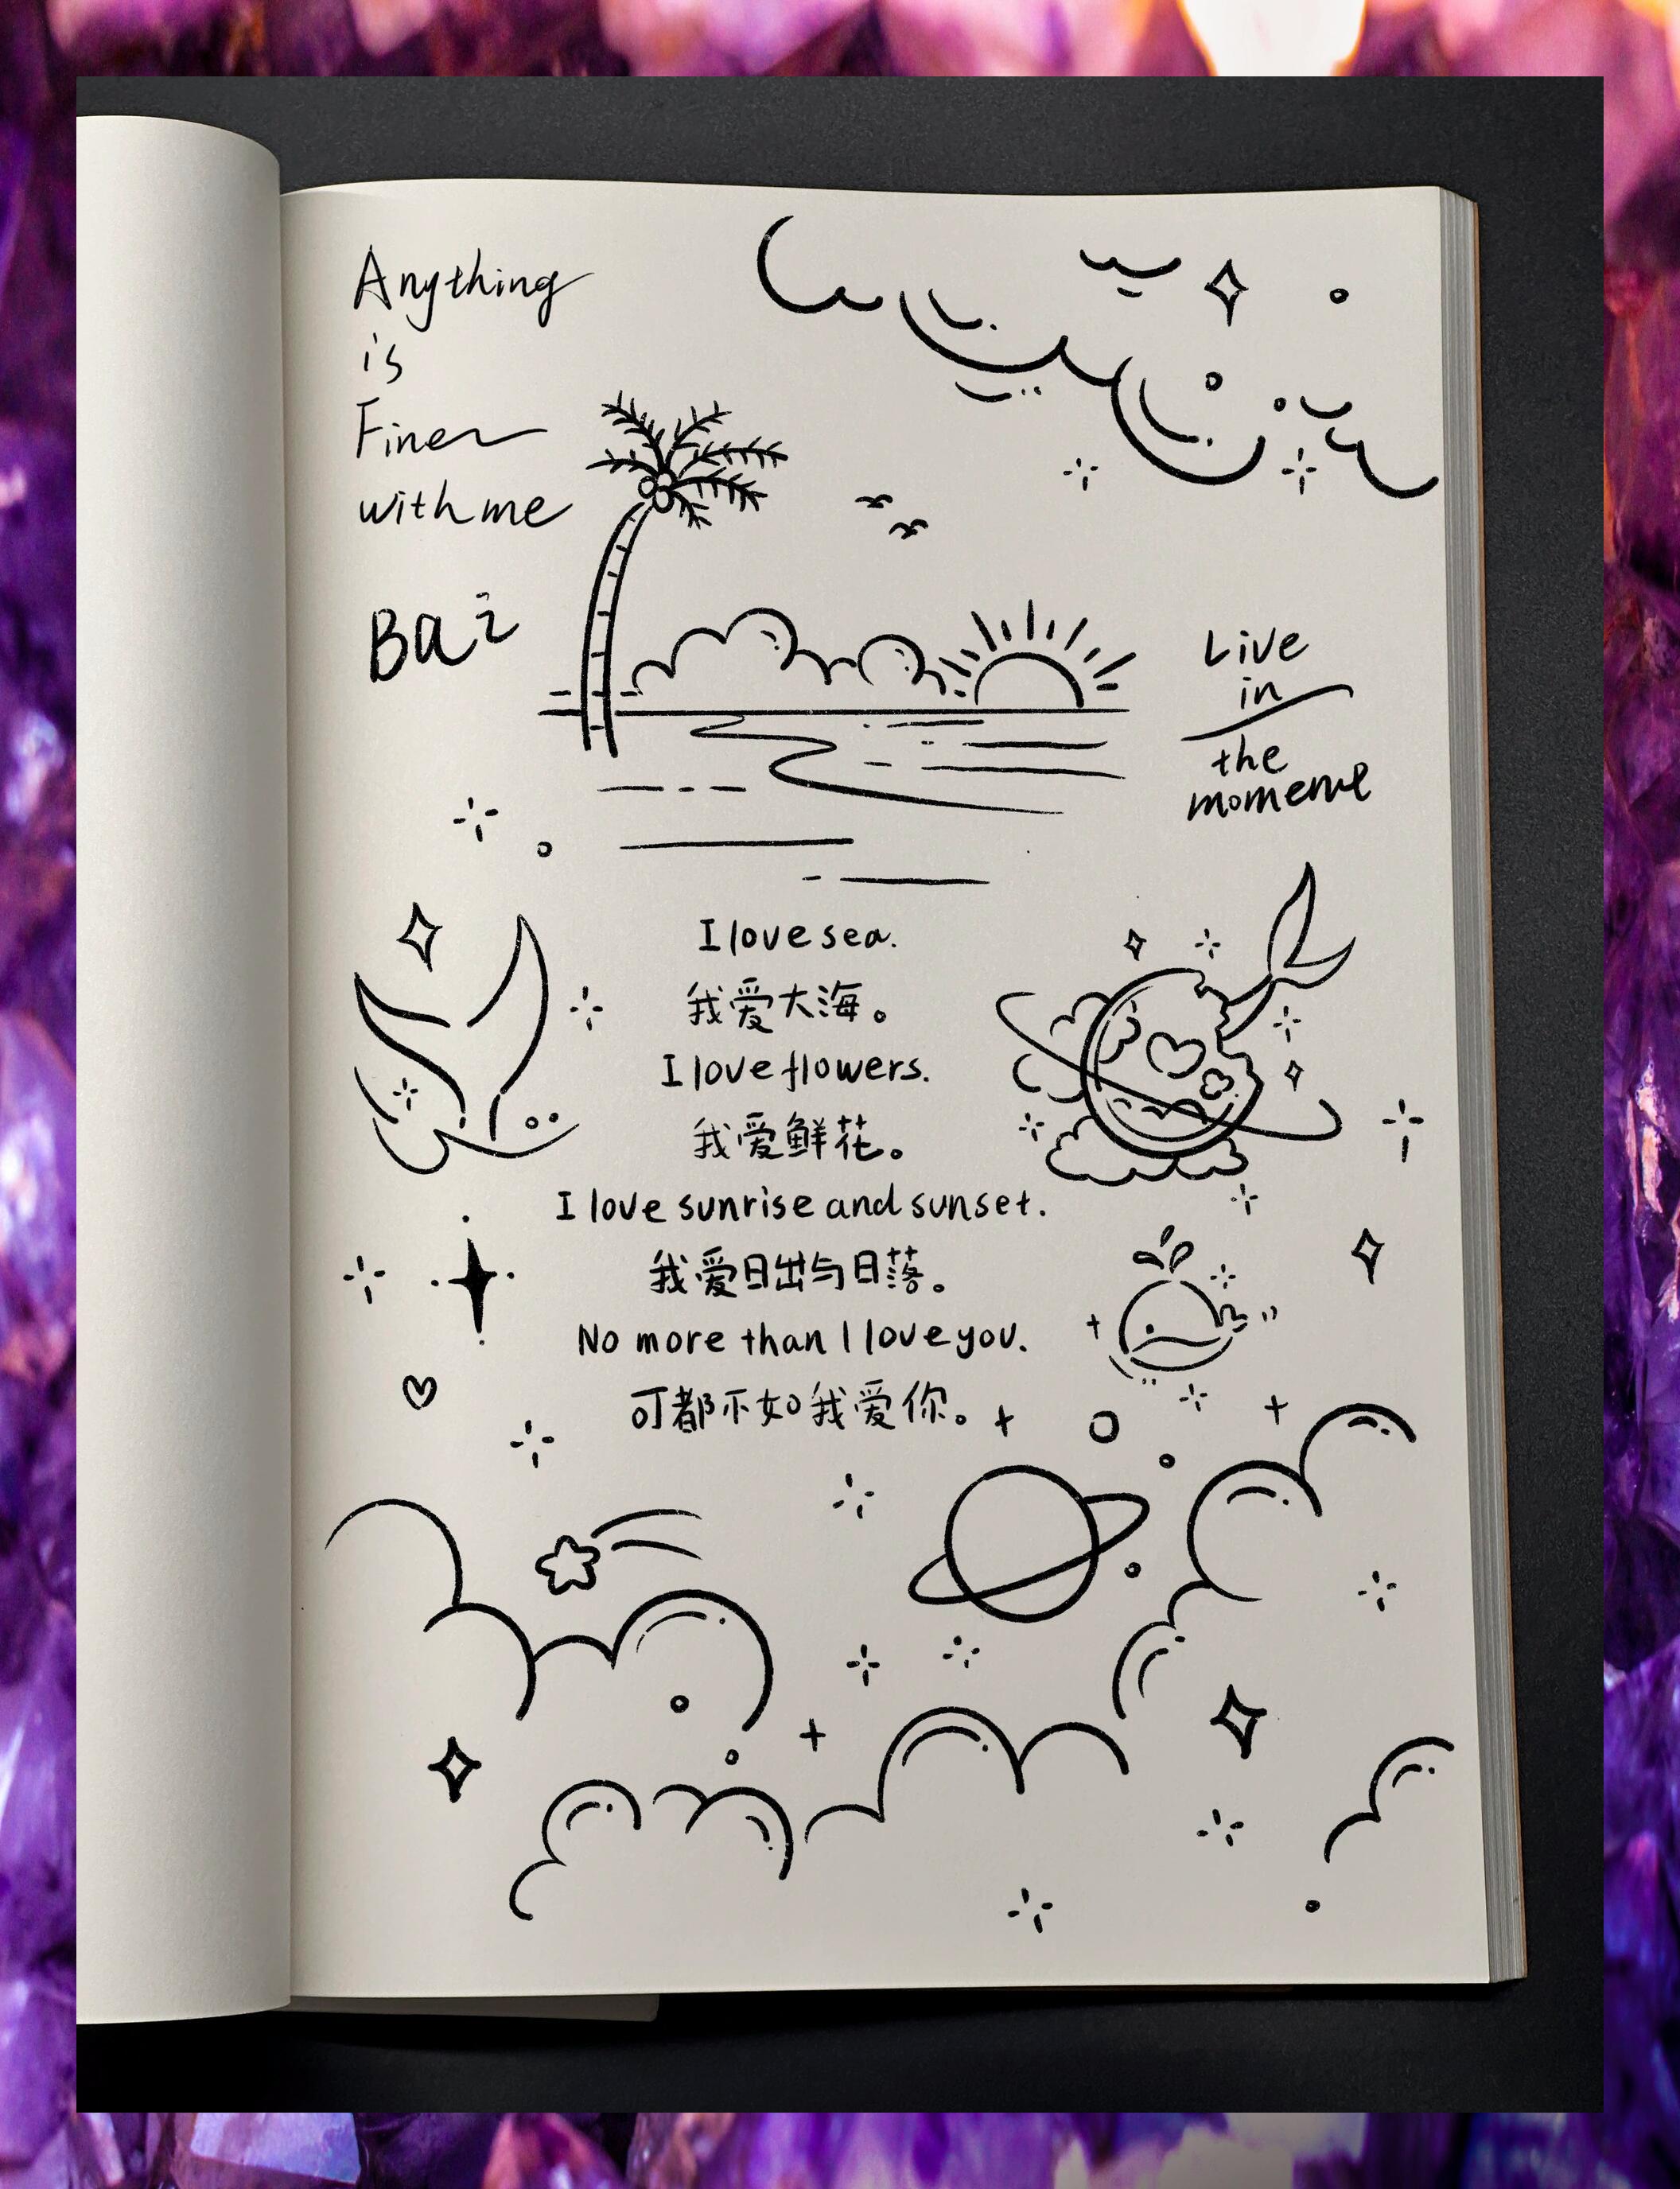 Anything
is
Fine
with me
Bai
Live
in
the
moment
I love sea.
我爱大海。
I love flowers.
我爱鲜花。
I love sunrise and sunset.
我爱日出与日落。
No more than I love you.
可都不如我爱你。